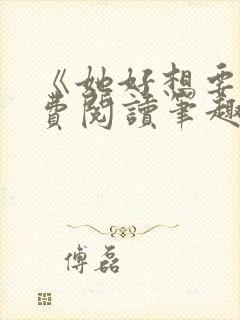 《她好想要
費閱讀筆趣
傅磊